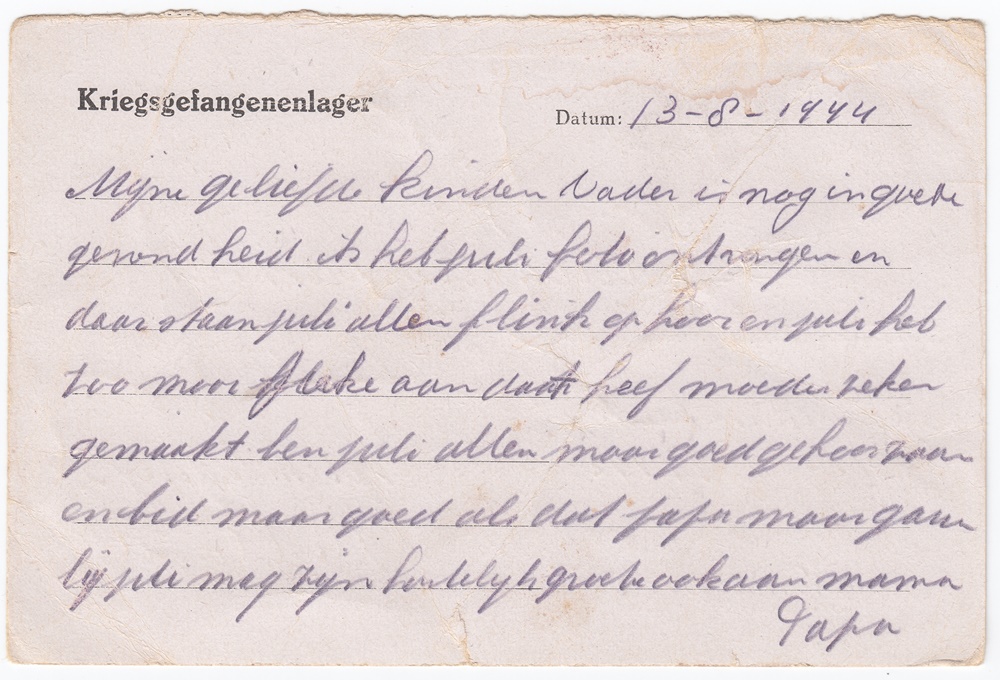 Kriegsgefangenenlager
Datum: 13-8-1944
Mijne geliefde kinden Vader is nog in goede
gesond heid ik heb juli foto ontvangen en
daar staan juli allen flink op hoor en juli heb
zoo moor aan daat heef moeder zeker
gemaakt ben juli allen maar goed gehoorzaam
en bid maar goed als dat papa maar gauw
bij juli mag zijn hartelijk groete ook aan mama
Papa